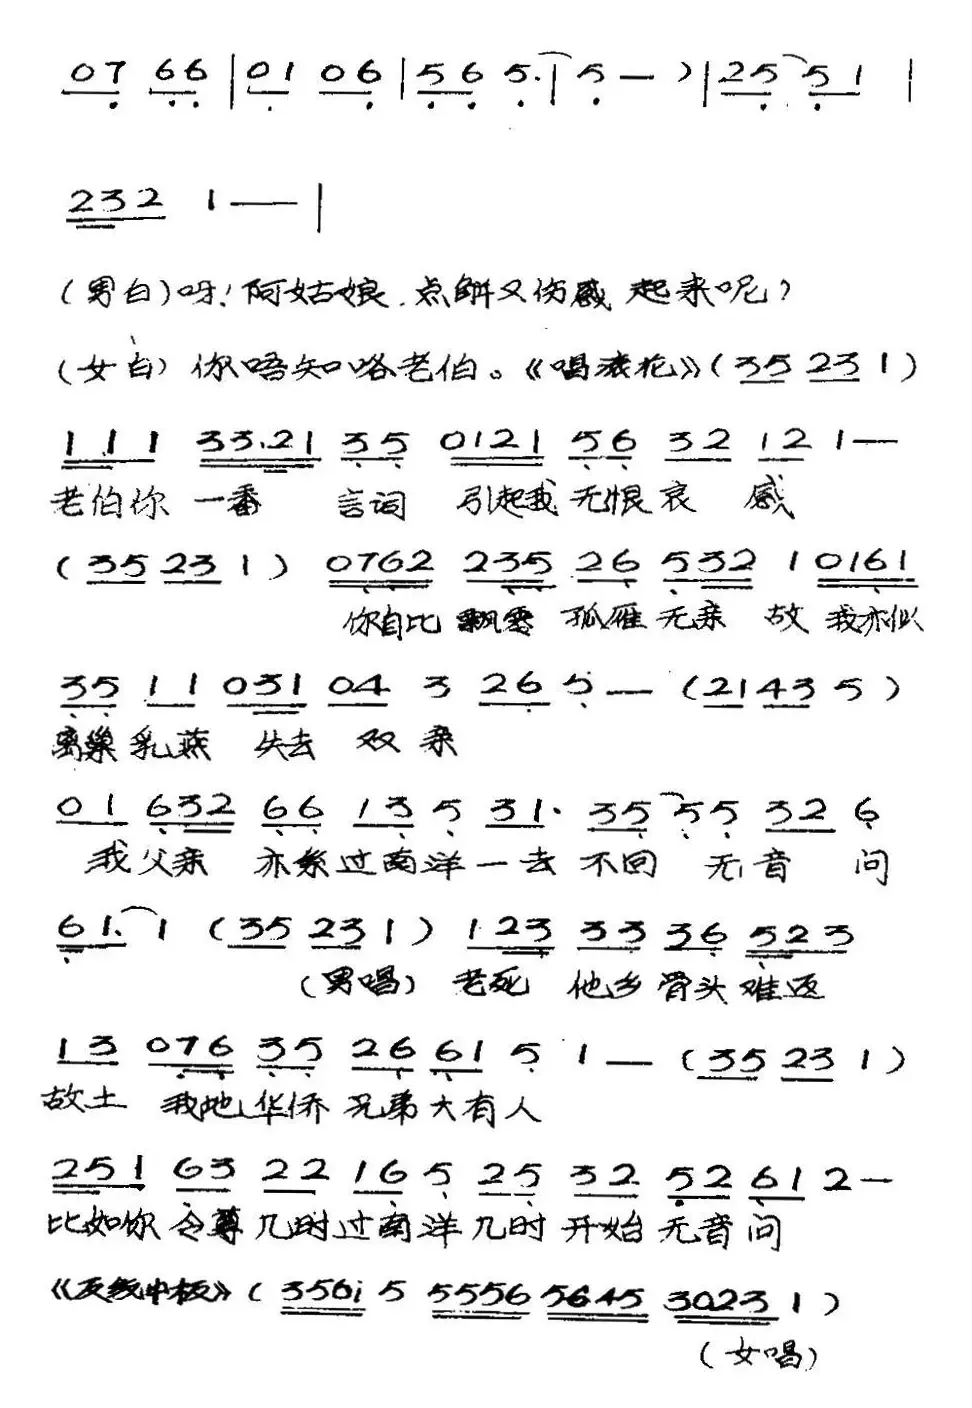 07 66 | 01 06 | 56 5. | 5 — ) | 25 51 |
232 1 — |
(男白)呀!阿姑娘.点解又伤感起来呢?
(女白)你唔知咯老伯。《唱滚花》(35 23 1)
111 33.21 35 0121 56 32 12 1—
老伯你 一番 言词 引起我无恨哀 感
(35 23 1) 0762 235 26 532 1 0161
你自比 飘零 孤雁无亲 故 我亦似
35 11 031 04 3 26 5 — (2143 5)
离巢乳燕 失去 双 亲
01 632 66 13 5 31. 35 55 32 6
我父亲 亦系过南洋一去 不回 无音 问
61. 1 (35 23 1) 123 33 36 523
(男唱) 老死 他乡骨头难返
13 076 35 26 61 5 1 — (35 23 1)
故土 我地华侨兄弟大有人
251 63 22 16 5 25 32 52 61 2—
比如你令尊几时过南洋几时开始无音问
《反线中板》(356i 5 5556 5645 3023 1)
(女唱)